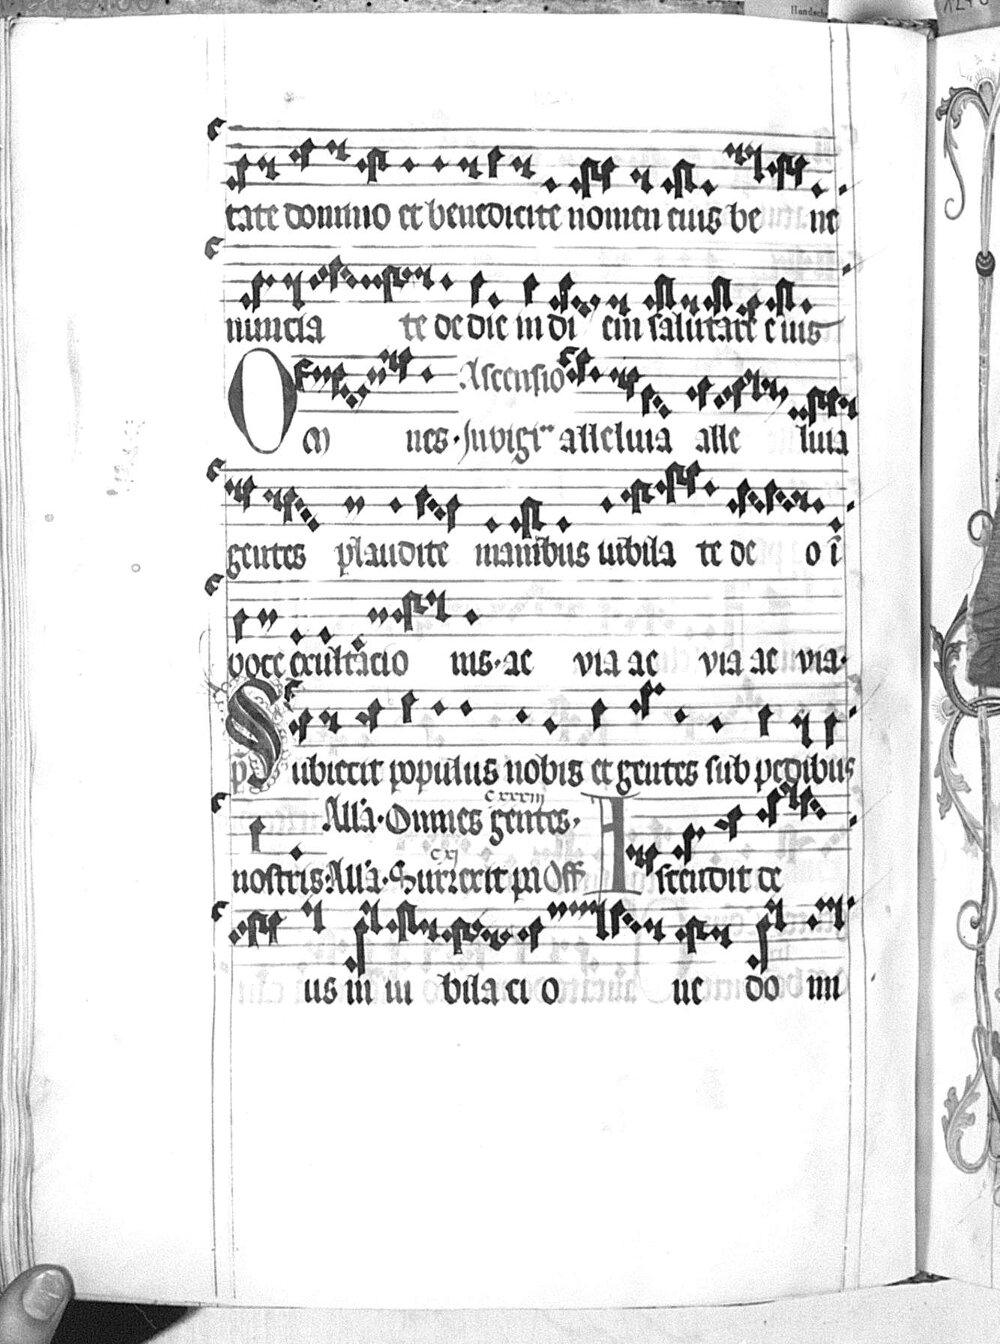 Handsch
tate domino et benedicite nomen eius be ne
nuncia te de die in di em salutare eius
Ascensio
Om nes. In vigi alleluia alle luia
gentes plaudite manibus iubila te de o ī
voce exultacio nis. ae via ae via ae via.
ps Subiecit populus nobis et gentes sub pedibus
cxxxiij
All'a. Omnes gentes.
cxj
nostris. All'a. Surrexit pn Off Ascendit de
us in iu bila ci o ne do mi